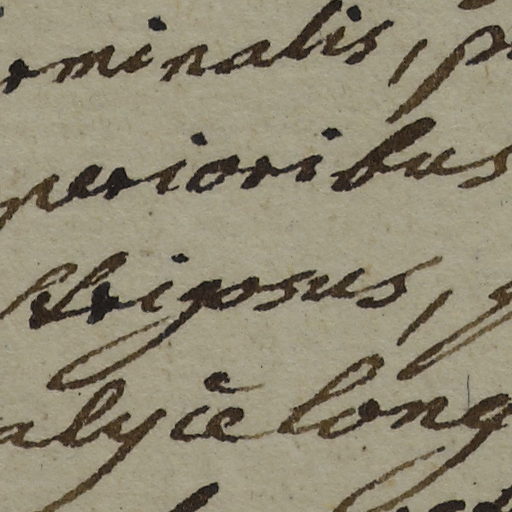 rminalis, p
perioribus
Strigosus,
alycè long